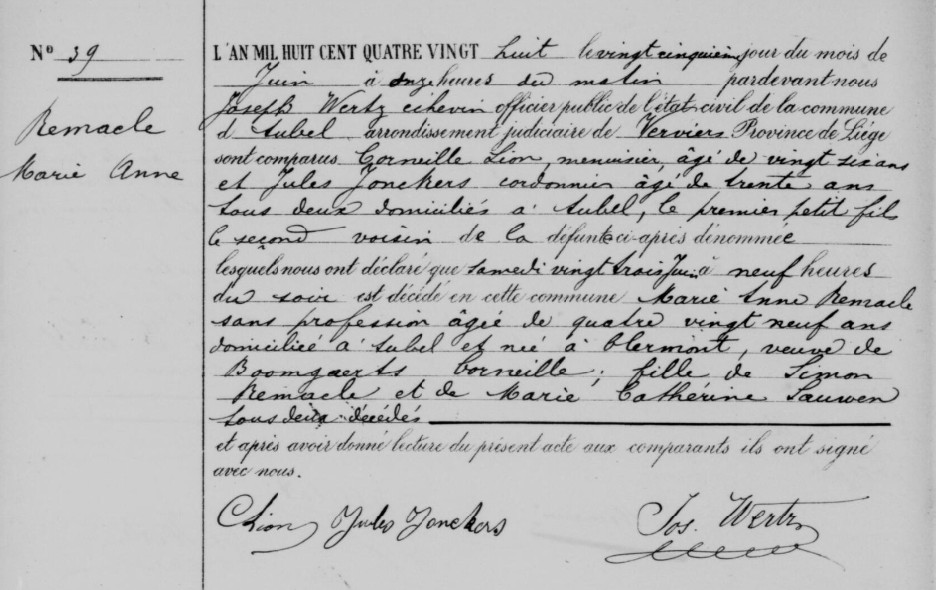 No 39
Remacle
Marie Anne
L'AN MIL HUIT CENT QUATRE VINGT huit le vingt cinquième jour du mois de
Juin à onze heures du matin pardevant nous
Joseph Wertz echevin officier public de l'état civil de la commune
d'Aubel arrondissement judiciaire de Verviers Province de Liége
sont comparus Corneille Lion, menuisier, âgé de vingt six ans
et Jules Jonckers cordonnier âgé de trente ans
tous deux domiciliés à Aubel, le premier petit fils
le second voisin de la défunte ci-après dénommée
lesquels nous ont déclaré que samedi vingt trois Juin à neuf heures
du soir est décédé en cette commune Marie Anne Remacle
sans profession âgée de quatre vingt neuf ans
domiciliée à Aubel et née à Clermont, veuve de
Boomgaerts Corneille; fille de Simon
Remacle et de Marie Cathérine Lauwen
tous deux décédés
et après avoir donné lecture du présent acte aux comparants ils ont signé
avec nous.
CLion Jules Jonckers Jos. Wertz